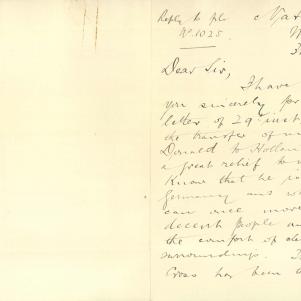 Reply to pl c Nat
W.1025.
Dear Sir,
I have
you sincerely for
letter of 29th inst
the transfer of m
Donald to Hollan
a great relief to
Know that he is
Germany and w
can once more
decent people an
the comfort of cle
surroundings. T
Cross has been a